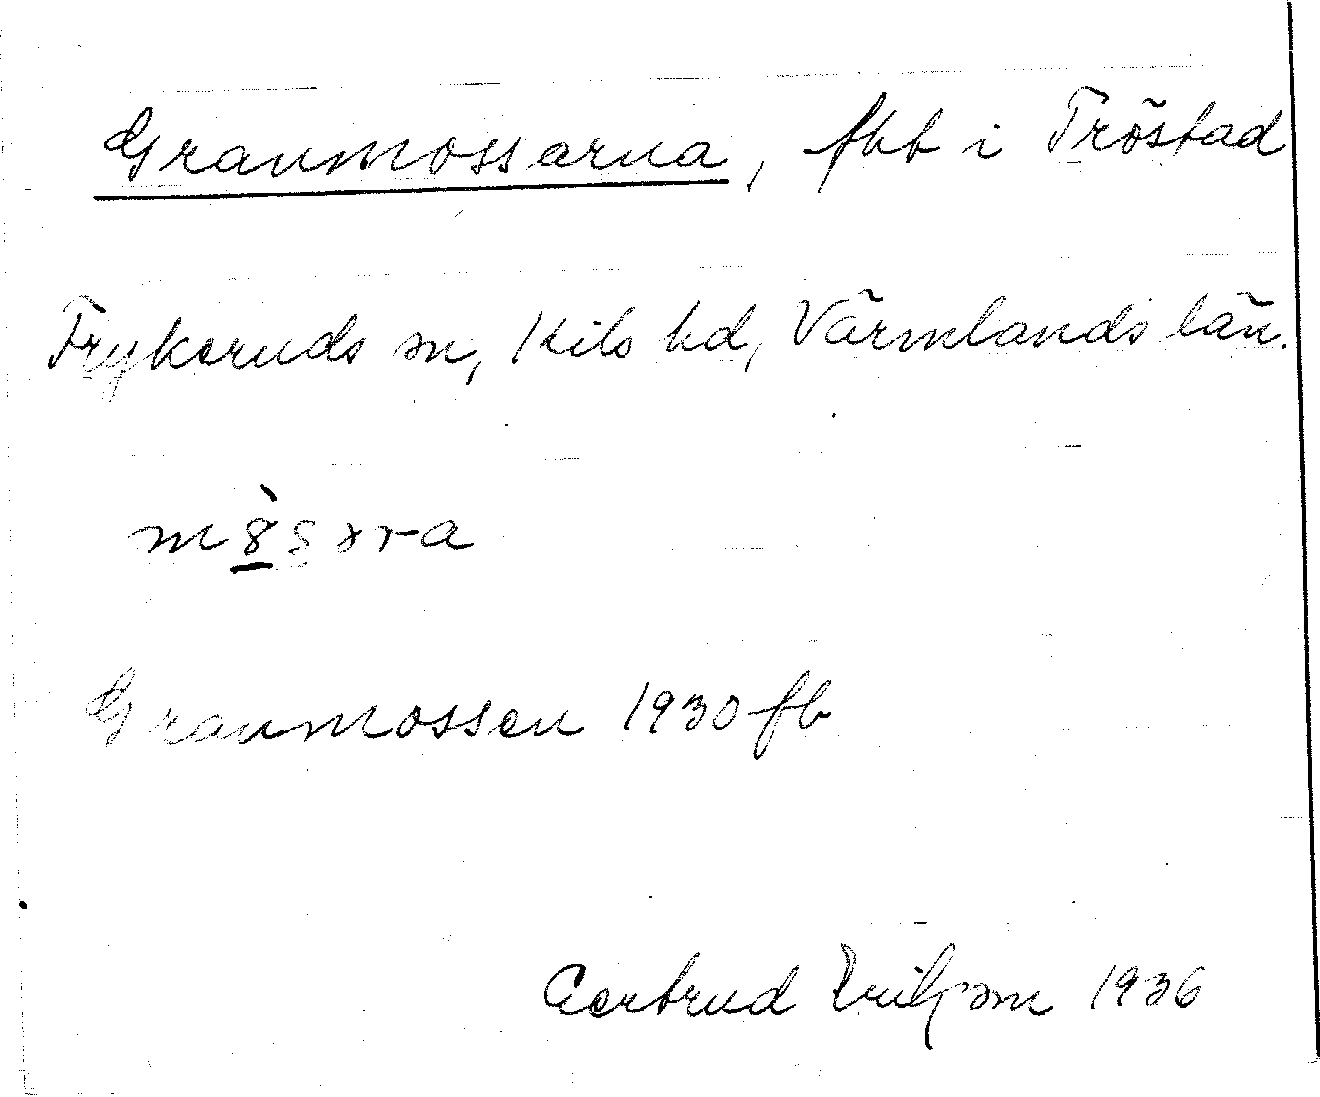 Granmossarna, fbb i Tröstad
Frykeruds sn, Kils hd, Värmlands län.
Granmossen 1930 fb
Gertrud 1936